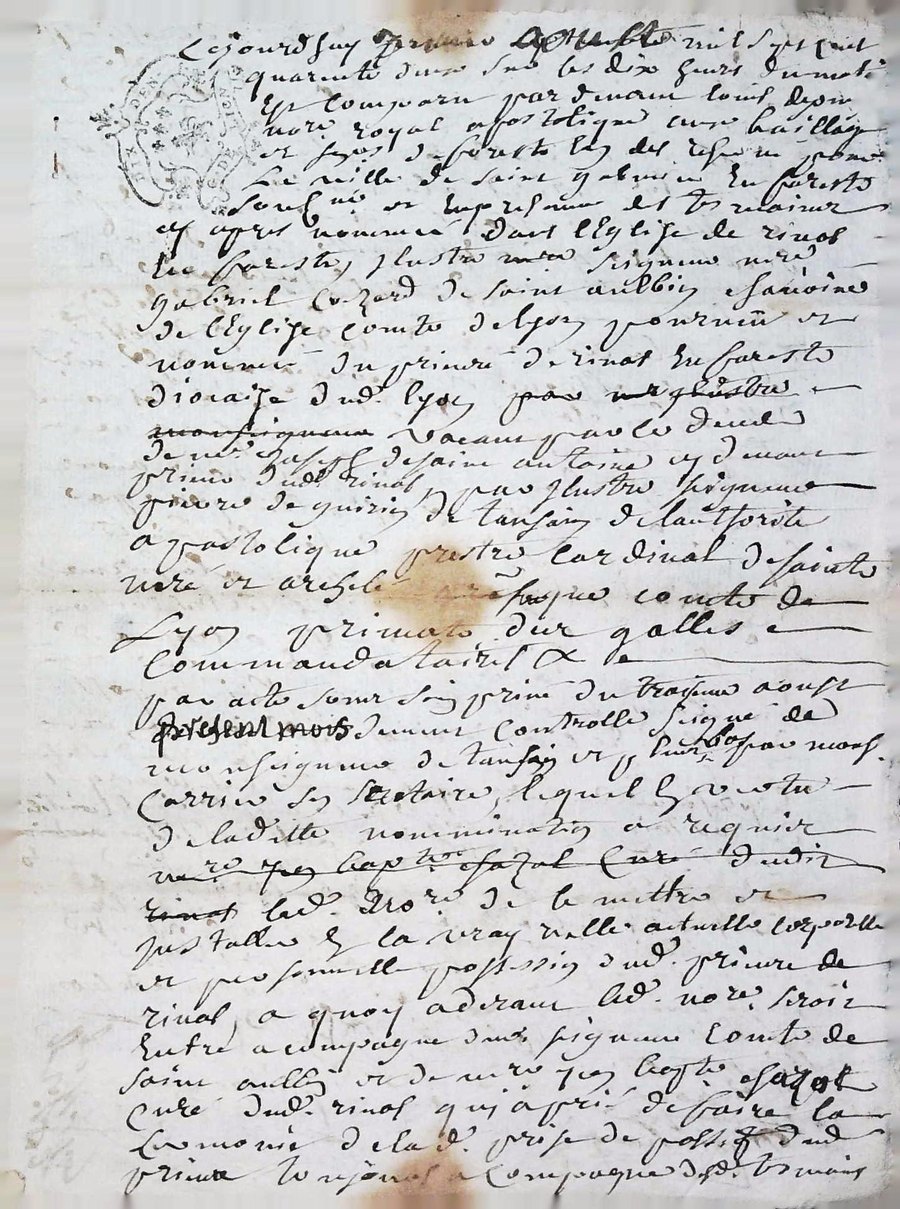 Cejourdhuy premier septembre mil sept cent
quarente deux sur les dix heurs du mati
Est comparu pardevant louis
nore royal apostolique aux baillage
et de forests les
La ville de saint galmier En forests
sousné et En presence des temoins
cy apres nommés dans lEglise de rivas
En forests, Jllustre seigneur mere
gabriel Cozard de saint aulbin chanoine
de lEglise comte de lyon pourveu et
nommé du prieuré de rivas En forests
diocaise dud. lyon par
monseigneur vacant par le deceds
de mre Joseph de saint antoine cy devant
prieur dud. rivas, par Jllustre seigneur
pierre de guerin de tansin de lauthorité
apostolique prestre Cardinal de sainte
et archevesque comte de
Lyon primate des galles
Commandataires &
par acte sous sein privé du traisieme aoust
present mois dument Controllé signé de
monseigneur de tansin et plus bas par mons.
Carrier son secretaire, lequel En vertu
de laditte nommination a requier
mere jean baptte chazal Curé dudit
rivas led. nore de le mettre et
Jnstaller En la vray réelle actuelle corporelle
et personnelle possession dud. prieuré de
rivas, a quoy aderant led. nore. seroit
Entré acompagné dud. seigneur Comte de
saint aulbin et de mere jean bapte chazal
Curé dud. rivas qui a prié de faire la
Ceremonie de lad. prise de possession dud
prieuré toujours acompagné desd. temoins